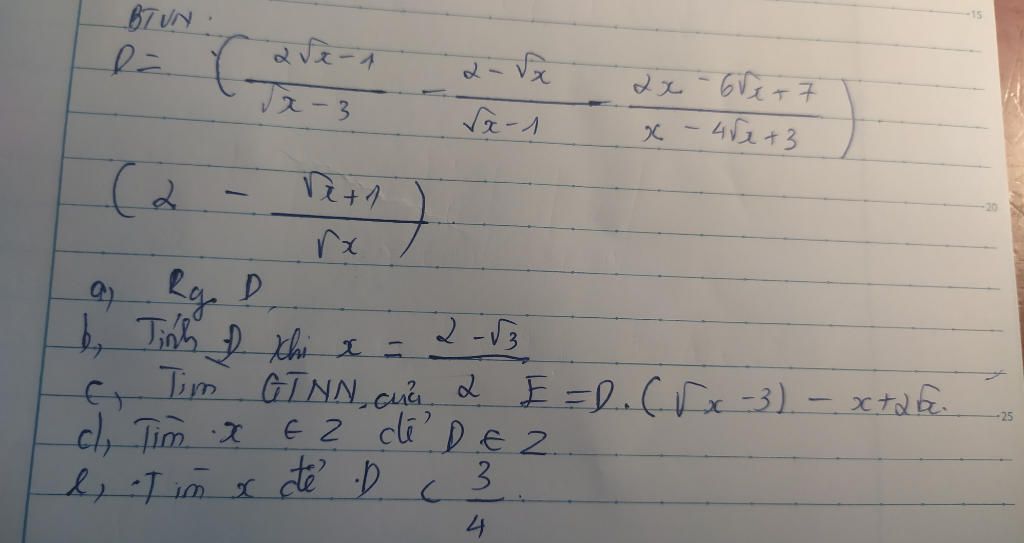 BTVN.
D = ( (2√x - 1)/(√x - 3) - (2 - √x)/(√x - 1) - (2x - 6√x + 7)/(x - 4√x + 3) )
( 2 - (√x + 1)/(√x) )
a, Rg D
b, Tính D khi x = (2 - √3)/2
c, Tìm GTNN của E = D.(√x - 3) - x + 2√x.
d, Tìm x ∈ Z để D ∈ Z
e, Tìm x để D < 3/4.
15
20
25